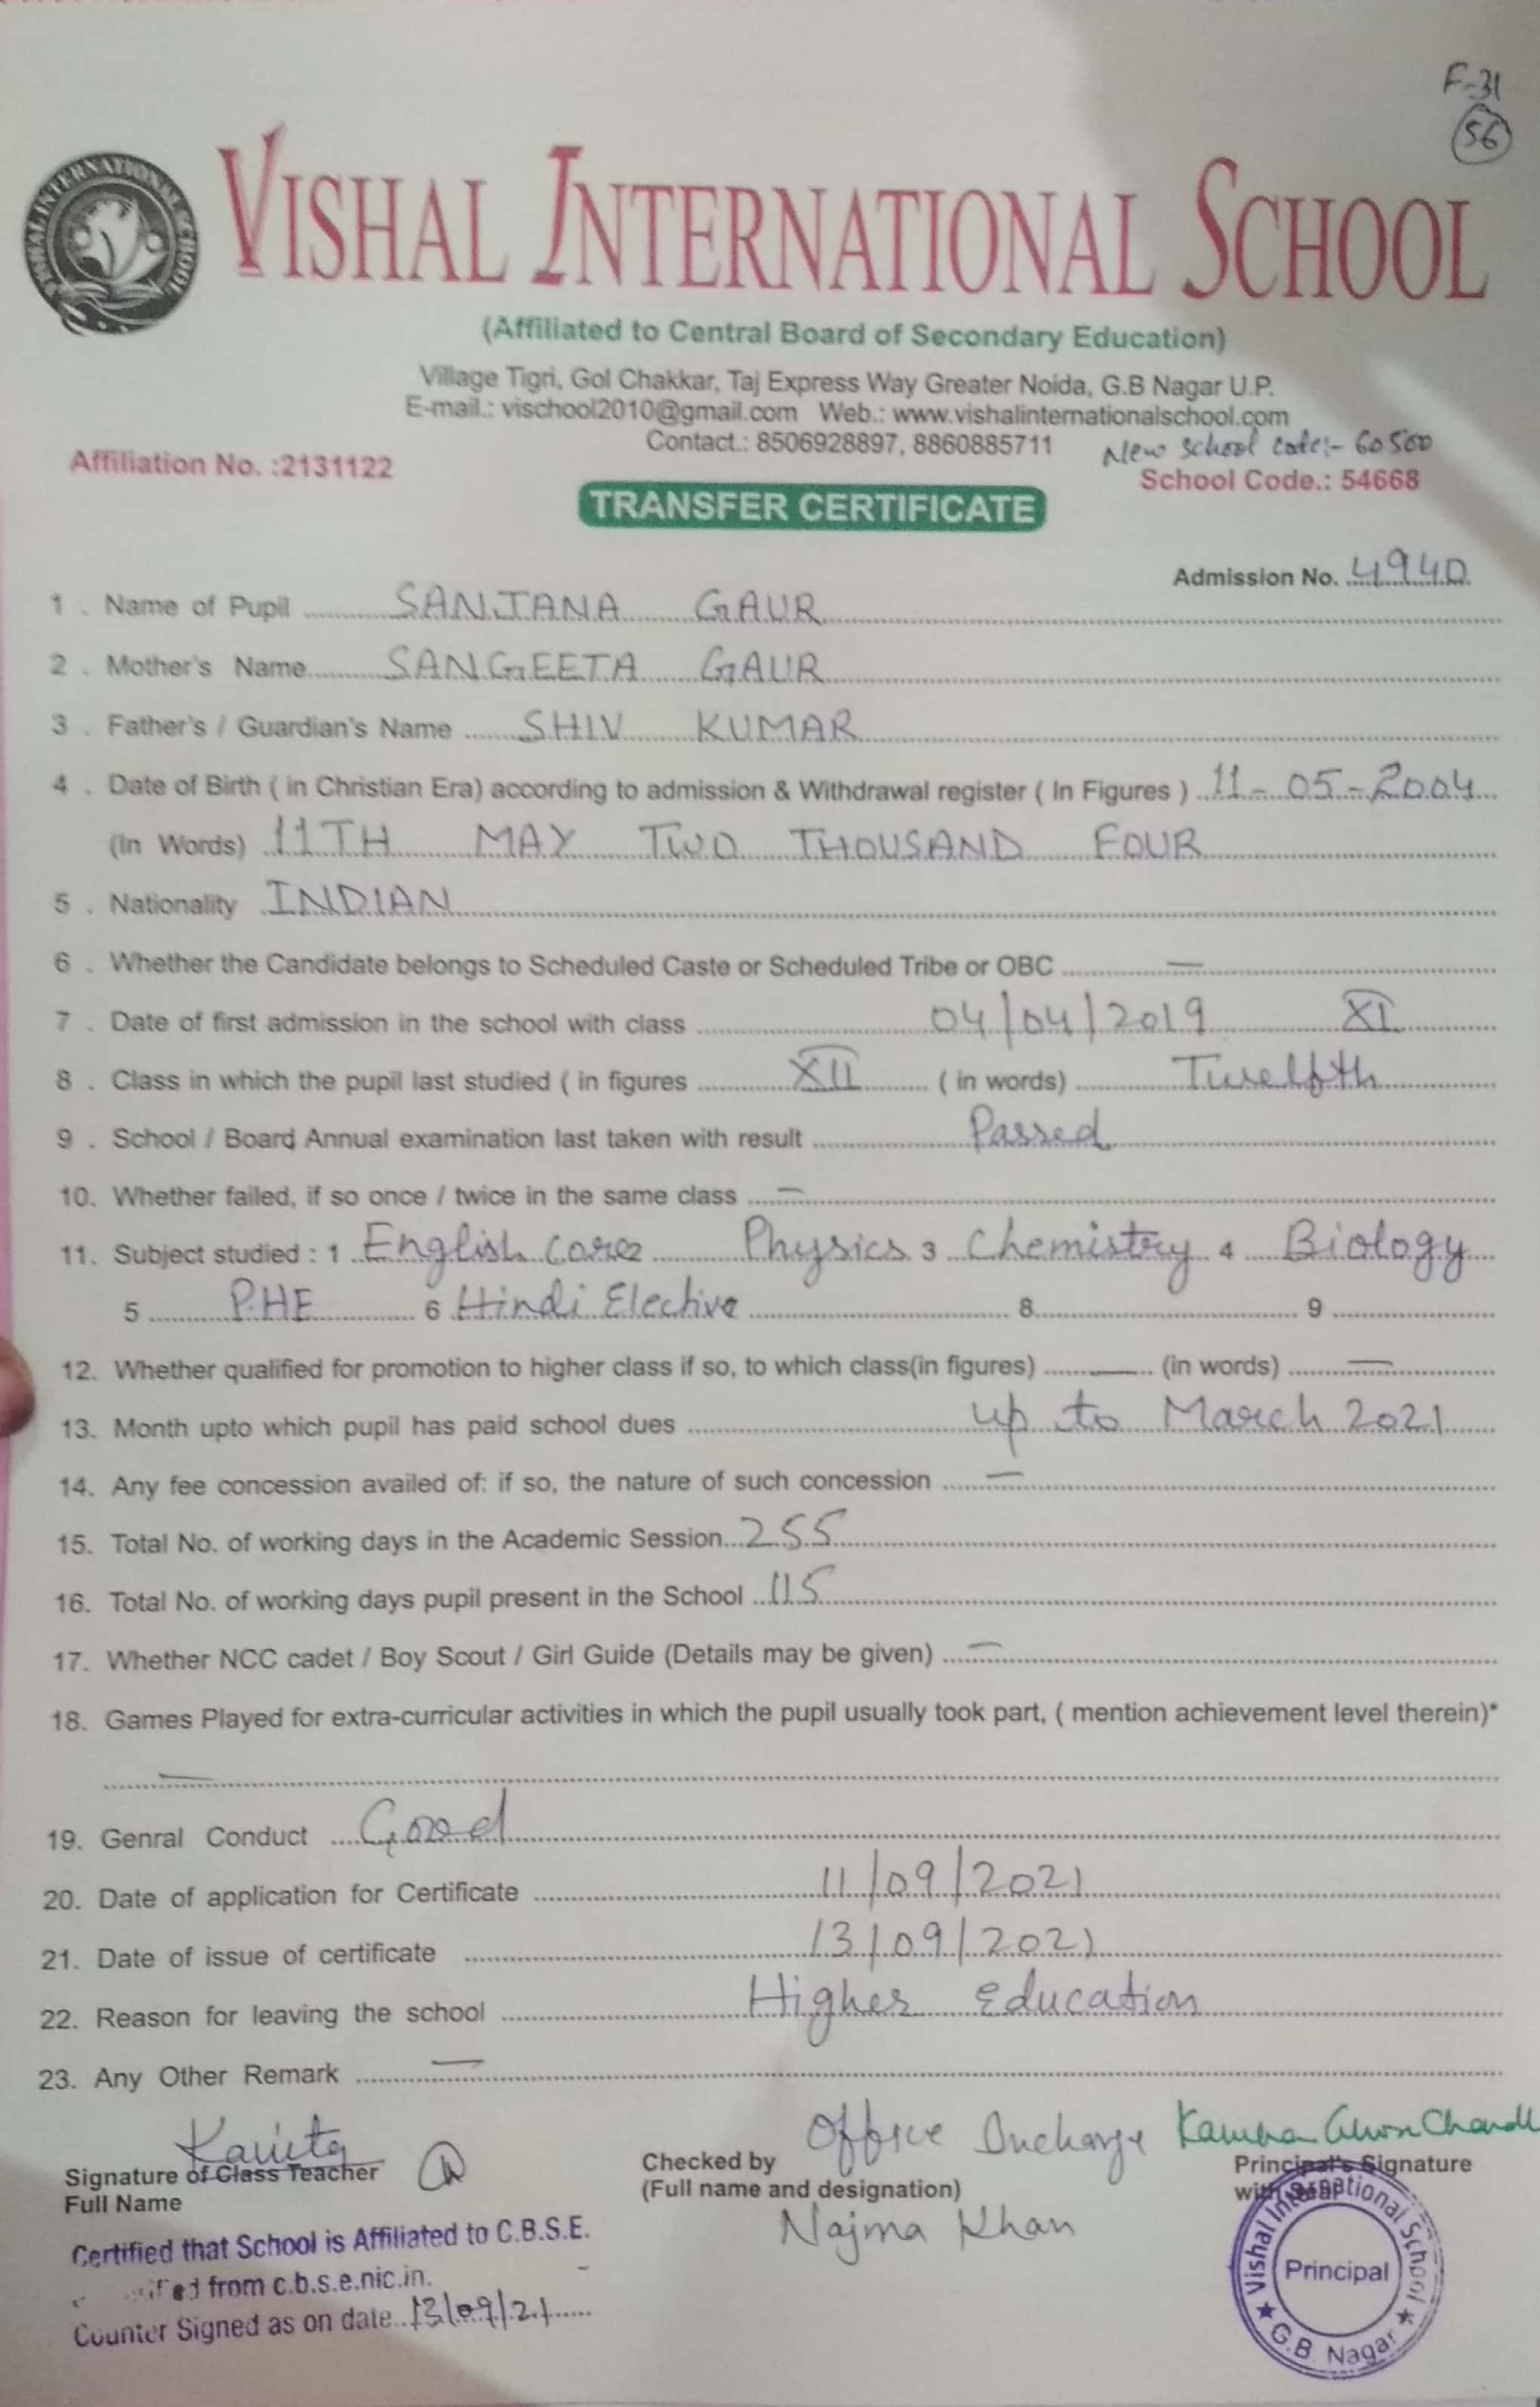 F-31
56
VISHAL INTERNATIONAL SCHOOL
VISHAL INTERNATIONAL SCHOOL
(Affiliated to Central Board of Secondary Education)
Village Tigri, Gol Chakkar, Taj Express Way Greater Noida, G.B Nagar U.P.
E-mail.: vischool2010@gmail.com Web.: www.vishalinternationalschool.com
Contact.: 8506928897, 8860885711 New school code:- 60500
Affiliation No. :2131122 School Code.: 54668
TRANSFER CERTIFICATE
Admission No. 4940
1 . Name of Pupil SANJANA GAUR
2 . Mother's Name SANGEETA GAUR
3 . Father's / Guardian's Name SHIV KUMAR
4 . Date of Birth ( in Christian Era) according to admission & Withdrawal register ( In Figures ) 11-05-2004
(In Words) 11TH MAY TWO THOUSAND FOUR
5 . Nationality INDIAN
6 . Whether the Candidate belongs to Scheduled Caste or Scheduled Tribe or OBC —
7 . Date of first admission in the school with class 04/04/2019 XI
8 . Class in which the pupil last studied ( in figures XII ( in words) Twelfth
9 . School / Board Annual examination last taken with result Passed
10. Whether failed, if so once / twice in the same class —
11. Subject studied : 1 English Core 2 Physics 3 Chemistry 4 Biology
5 P.HE 6 Hindi Elective 8 9
12. Whether qualified for promotion to higher class if so, to which class(in figures) — (in words) —
13. Month upto which pupil has paid school dues up to March 2021
14. Any fee concession availed of: if so, the nature of such concession —
15. Total No. of working days in the Academic Session 255
16. Total No. of working days pupil present in the School 115
17. Whether NCC cadet / Boy Scout / Girl Guide (Details may be given) —
18. Games Played for extra-curricular activities in which the pupil usually took part, ( mention achievement level therein)*
—
19. Genral Conduct Good
20. Date of application for Certificate 11/09/2021
21. Date of issue of certificate 13/09/2021
22. Reason for leaving the school Higher Education
23. Any Other Remark —
Kavita Office Incharge
Signature of Class Teacher Checked by Principal's Signature
Full Name (Full name and designation) with
Najma Khan
Certified that School is Affiliated to C.B.S.E.
from c.b.s.e.nic.in.
Counter Signed as on date 13/09/21
Vishal International School
Principal
G.B. Nagar